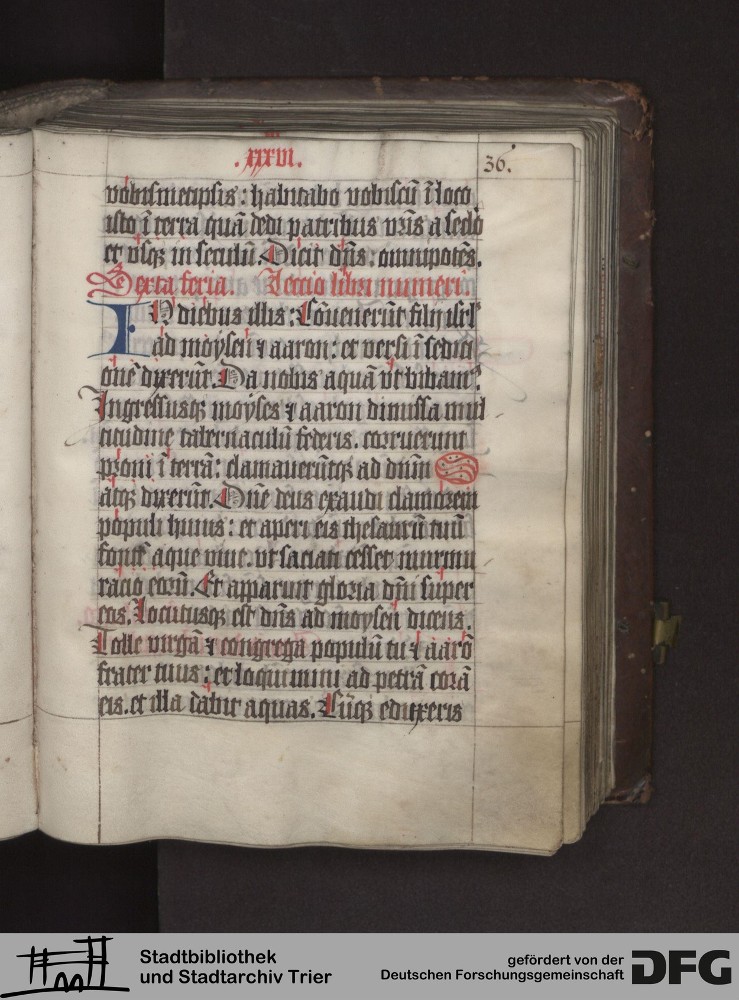 .xxxvi.
36.
vobismetipsis : habitabo vobiscū ī loco
isto ī terra quā dedi patribus vr̄is a sclō
et vsqꝫ in seculū. Dicit dn̄s : omnipotēs.
Sexta feria. Lectio libri numeri.
IN diebus illis : Cōuenerūt filii isrl̄
ad moysen ⁊ aaron : et versi ī sediti
onē dixerūt. Da nobis aquā vt bibam⁹.
Ingressusqꝫ moyses ⁊ aaron dimissa mul
titudine tabernaculū federis. corruerunt
proni ī terrā : clamauerūtqꝫ ad dn̄m
atqꝫ dixerūt. Dn̄e deus exaudi clamorem
populi huius : et aperi eis thesaurū tuū
fontē aque viue. vt saciati cesset murmu
racio eorū. Et apparuit gloria dn̄i super
eos. Locutusqꝫ est dn̄s ad moysen dicens.
Tolle virgā ⁊ congrega populū tu ⁊ aarō
frater tuus : et loquimini ad petrā corā
eis. et illa dabit aquas. Cūqꝫ eduxeris
Stadtbibliothek
und Stadtarchiv Trier
gefördert von der
Deutschen Forschungsgemeinschaft
DFG